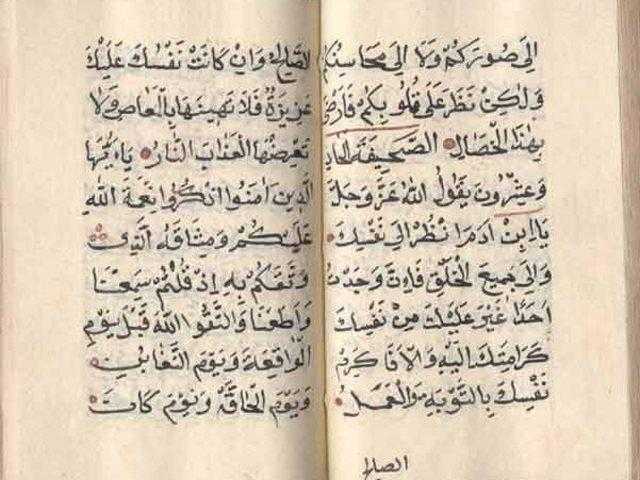 الى صوركم ولا الى محاسنكم
ولكن نظر على قلوبكم فارضى
بهذا الخصال الصحيفة الحاد
وعشرون يقول الله عز وجل
ياابن ادم انظر الى نفسك
والى جميع الخلق فان وجدت
احدا غير عليك من نفسك
كرامتك اليه والا فاكرم
نفسك بالتوبة والعمل
الصالح
الصالح وان كانت نفسك عليك
عزيزة فلا تهينها بالمعاصى ولا
تعرضها العذاب النار ياءيها
الذين امنوا اذكروا نعمة الله
عليكم وميثاقه الذى
وثقكم به اذ قلتم سمعنا
واطعنا والتقوا الله قبل يوم
الواقعة ويوم التغابن
ويوم الحاقة ويوم كان